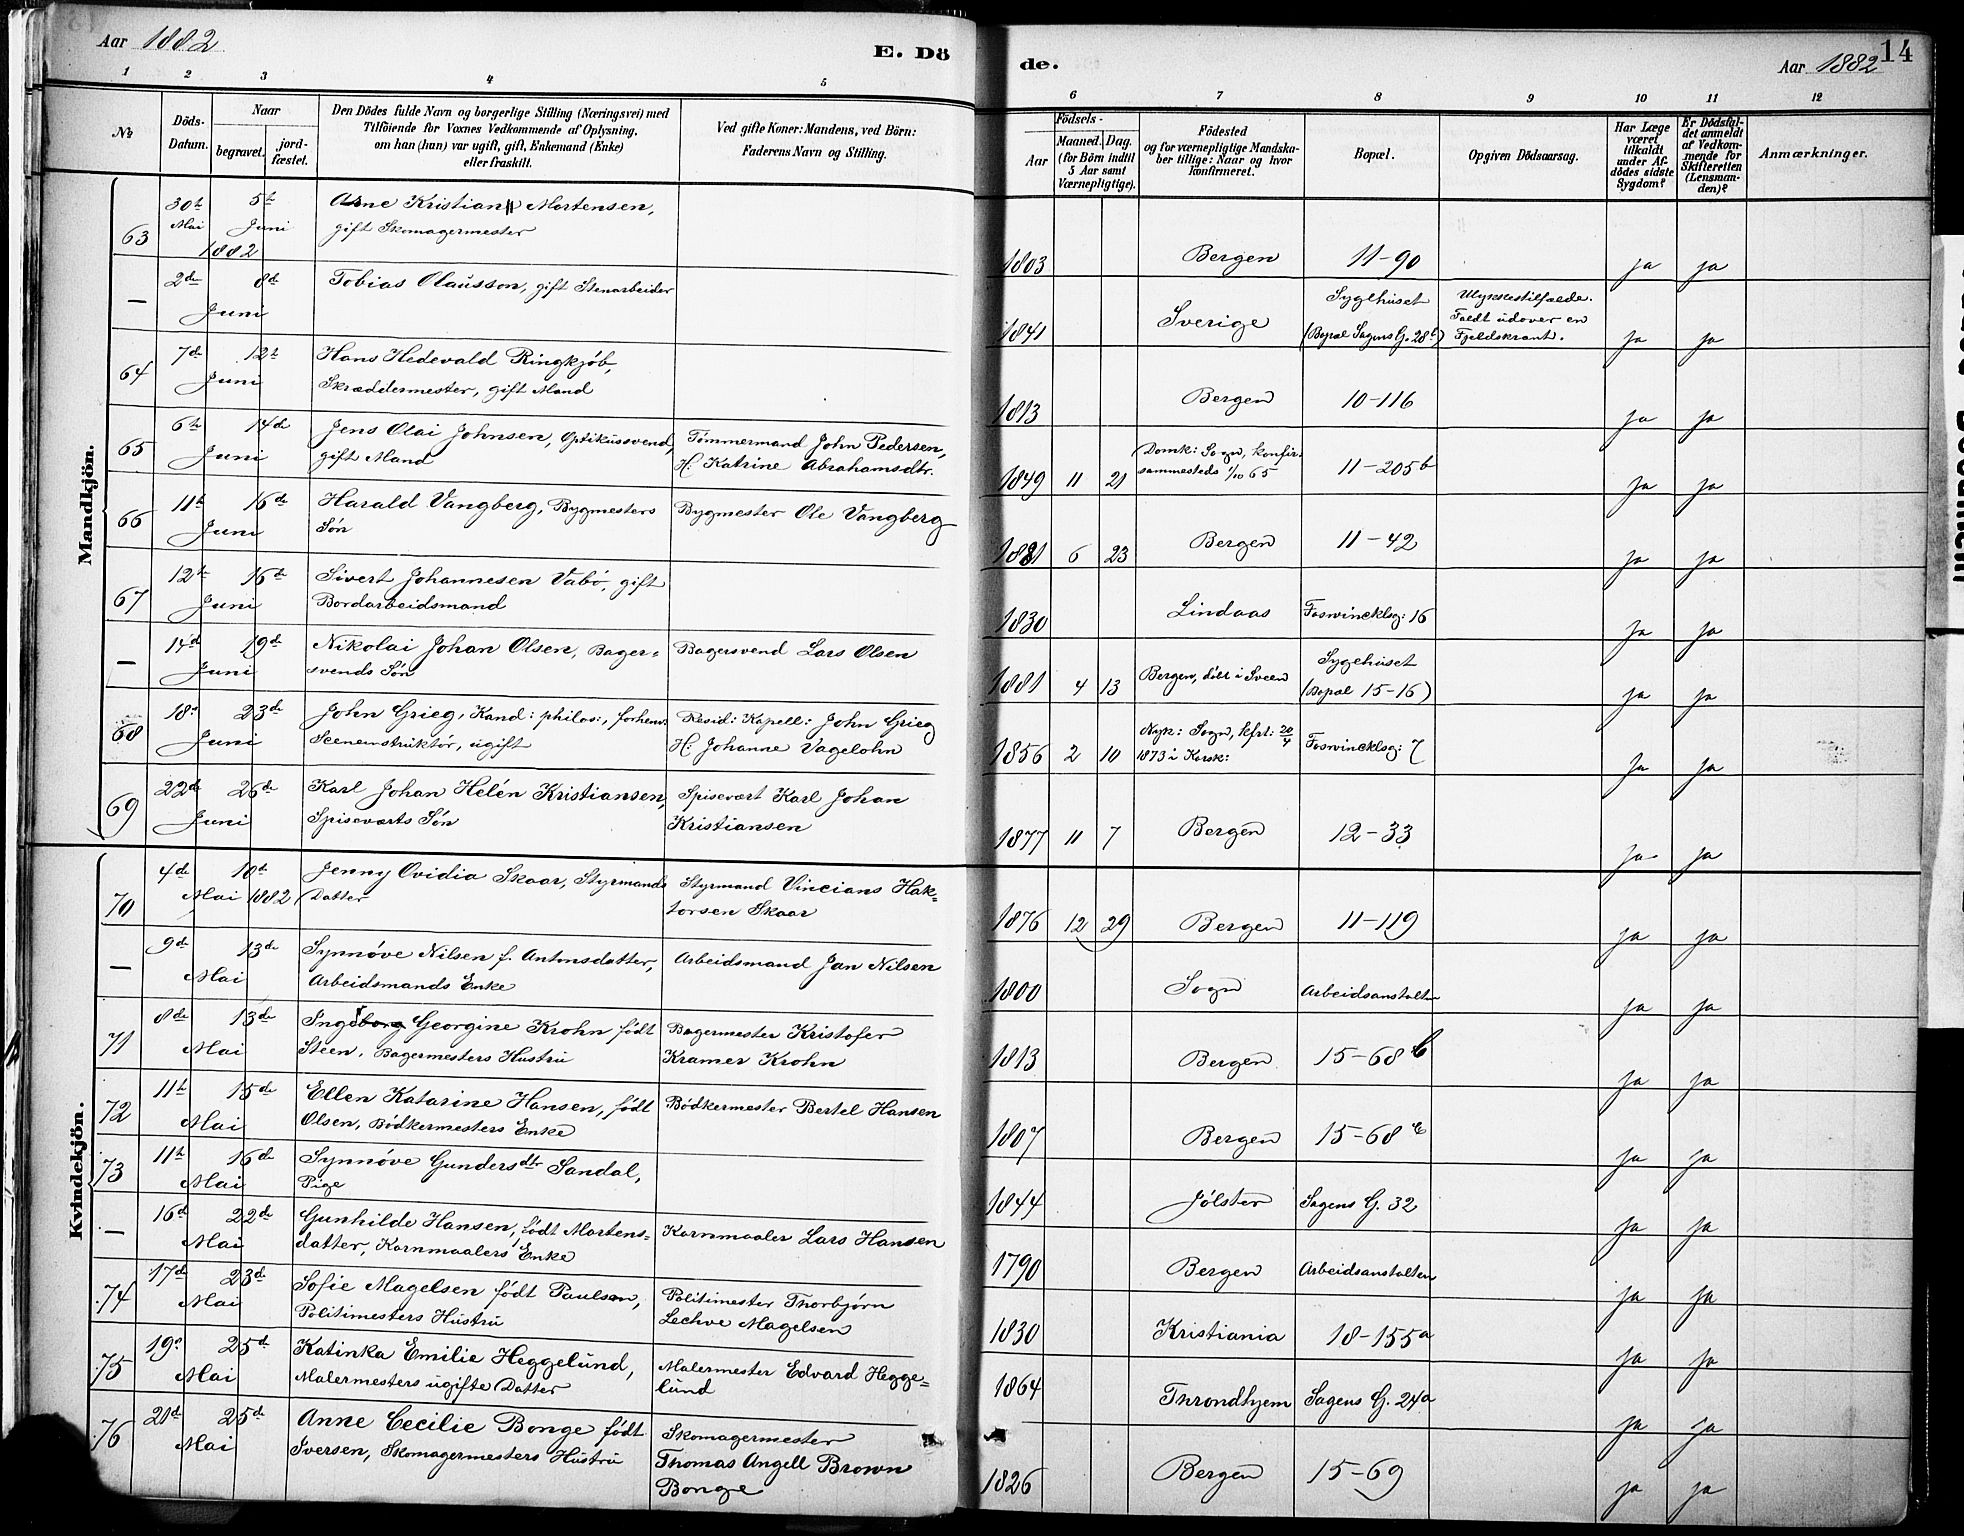 Aar 1882
E. Dö
de.
Aar 1882
14
1 2 3 4 5
6 7 8 9 10 11 12
№
Döds-
Datum.
Naar
begravet.
jord-
fæstet.
Den Dödes fulde Navn og borgerlige Stilling (Næringsvei) med
Tilföiende for Voxnes Vedkommende af Oplysning,
om han (hun) var ugift, gift, Enkemand (Enke)
eller fraskilt.
Ved gifte Koner: Mandens, ved Börn:
Faderens Navn og Stilling.
Födsels-
Aar
Maaned. Dag.
(for Börn indtil
5 Aar samt
Værnepligtige).
Födested
og for værnepligtige Mandska-
ber tillige: Naar og hvor
konfirmeret.
Bopæl.
Opgiven Dödsaarsag.
Har Læge
været
tilkaldt
under Af-
dödes sidste
Sygdom?
Er Dödsfal-
det anmeldt
af Vedkom-
mende for
Skifteretten
(Lensman-
den)?
Anmærkninger.
Mandkjön.
63 30te Mai 5te Juni 1882 Arne Kristian Mortensen,
gift Skomagermester
1803 Bergen 11-90 ja ja
— 2den 8de Juni Tobias Olausson, gift Stenarbeider
1841 Sverige Sygehuset
(Bopæl Sagens G. 28b)
Ulykkestilfælde.
Faldt udover en
Fjeldskrænt.
ja ja
64 7de 12te Juni Hans Hedevald Ringkjøb,
Skræddermester, gift Mand
1813 Bergen 10-116 ja ja
65 6te 14de Juni Jens Olai Johnsen, Optikussvend,
gift Mand
Tømmermand John Pedersen,
H: Katrine Abrahamsdtr.
1849 11 21 Domk: Sogn, konfir.
sammesteds 1/10 65
11-205b ja ja
66 11te 16de Juni Harald Vangberg, Bygmesters
Søn
Bygmester Ole Vangberg
1881 6 23 Bergen 11-42 ja ja
67 12te 16de Juni Sivert Johannesen Vabø, gift
Bordarbeidsmand
1830 Lindaas Foswincklsg: 16 ja ja
— 14de 19de Juni Nikolai Johan Olsen, Bager-
svends Søn
Bagersvend Lars Olsen
1881 4 13 Bergen, døbt i Sveen
Sygehuset
(Bopæl 15-16)
ja ja
68 18de 23de Juni John Grieg, Kand: philos:, forhenv.
Sceneinstruktør, ugift
Resid: Kapell: John Grieg
H: Johanne Vagelohn
1856 2 10 Nyk: Sogn, kfrt: 20/4
1873 i Korsk:
Foswincklsg: 7 ja ja
69 22de 26de Juni Karl Johan Helén Kristiansen,
Spiseværts Søn
Spisevært Karl Johan
Kristiansen
1877 11 7 Bergen 12-33 ja ja
Kvindekjön.
70 4de 10de Mai 1882 Jenny Ovidia Skaar, Styrmands
Datter
Styrmand Vincians Hak-
torsen Skaar
1876 12 29 Bergen 11-119 ja ja
— 9de 13de Mai Synnøve Nilsen f. Antonsdatter,
Arbeidsmands Enke
Arbeidsmand Jan Nilsen
1800 Sogn Arbeidsanstalten ja ja
71 8de 13de Mai Georgine Krohn født
Steen, Bagermesters Hustru
Bagermester Kristofer
Kramer Krohn
1813 Bergen 15-68 ja ja
72 11te 15de Mai Ellen Katarine Hansen, født
Olsen, Bødkermesters Enke
Bødkermester Bertel Hansen
1807 Bergen 15-68 ja ja
73 11te 16de Mai Synnøve Gundersdtr Sandal,
Pige
1844 Jølster Sagens G. 32 ja ja
— 16de 22de Mai Gunhilde Hansen, født Mortens-
datter, Kornmaalers Enke
Kornmaaler Lars Hansen
1790 Bergen Arbeidsanstalten ja ja
74 17de 23de Mai Sofie Magelsen født Paulsen,
Politimesters Hustru
Politimester Thorbjørn
Lechve Magelsen
1830 Kristiania 18-155a ja ja
75 19de 25de Mai Katinka Emilie Heggelund,
Malermesters ugifte Datter
Malermester Edvard Hegge-
lund
1864 Throndhjem Sagens G. 24a ja ja
76 21de 25de Mai Anne Cecilie Bonge født
Iversen, Skomagermesters Hustru
Skomagermester
Thomas Angell Brown
Bonge
1826 Bergen 15-69 ja ja